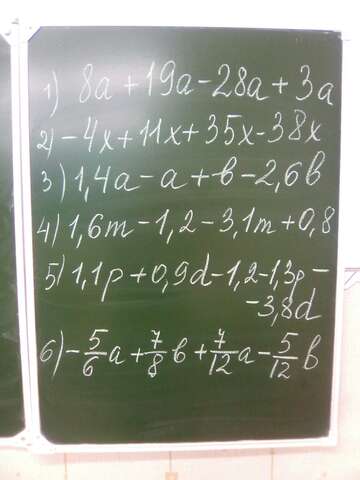 1) 8a + 19a - 28a + 3a
2) - 4x + 11x + 35x - 38x
3) 1,4a - a + b - 2,6b
4) 1,6m - 1,2 - 3,1m + 0,8
5) 1,1p + 0,9d - 1,2 - 1,3p -
- 3,8d
6) - 5/6 a + 7/8 b + 7/12 a - 5/12 b